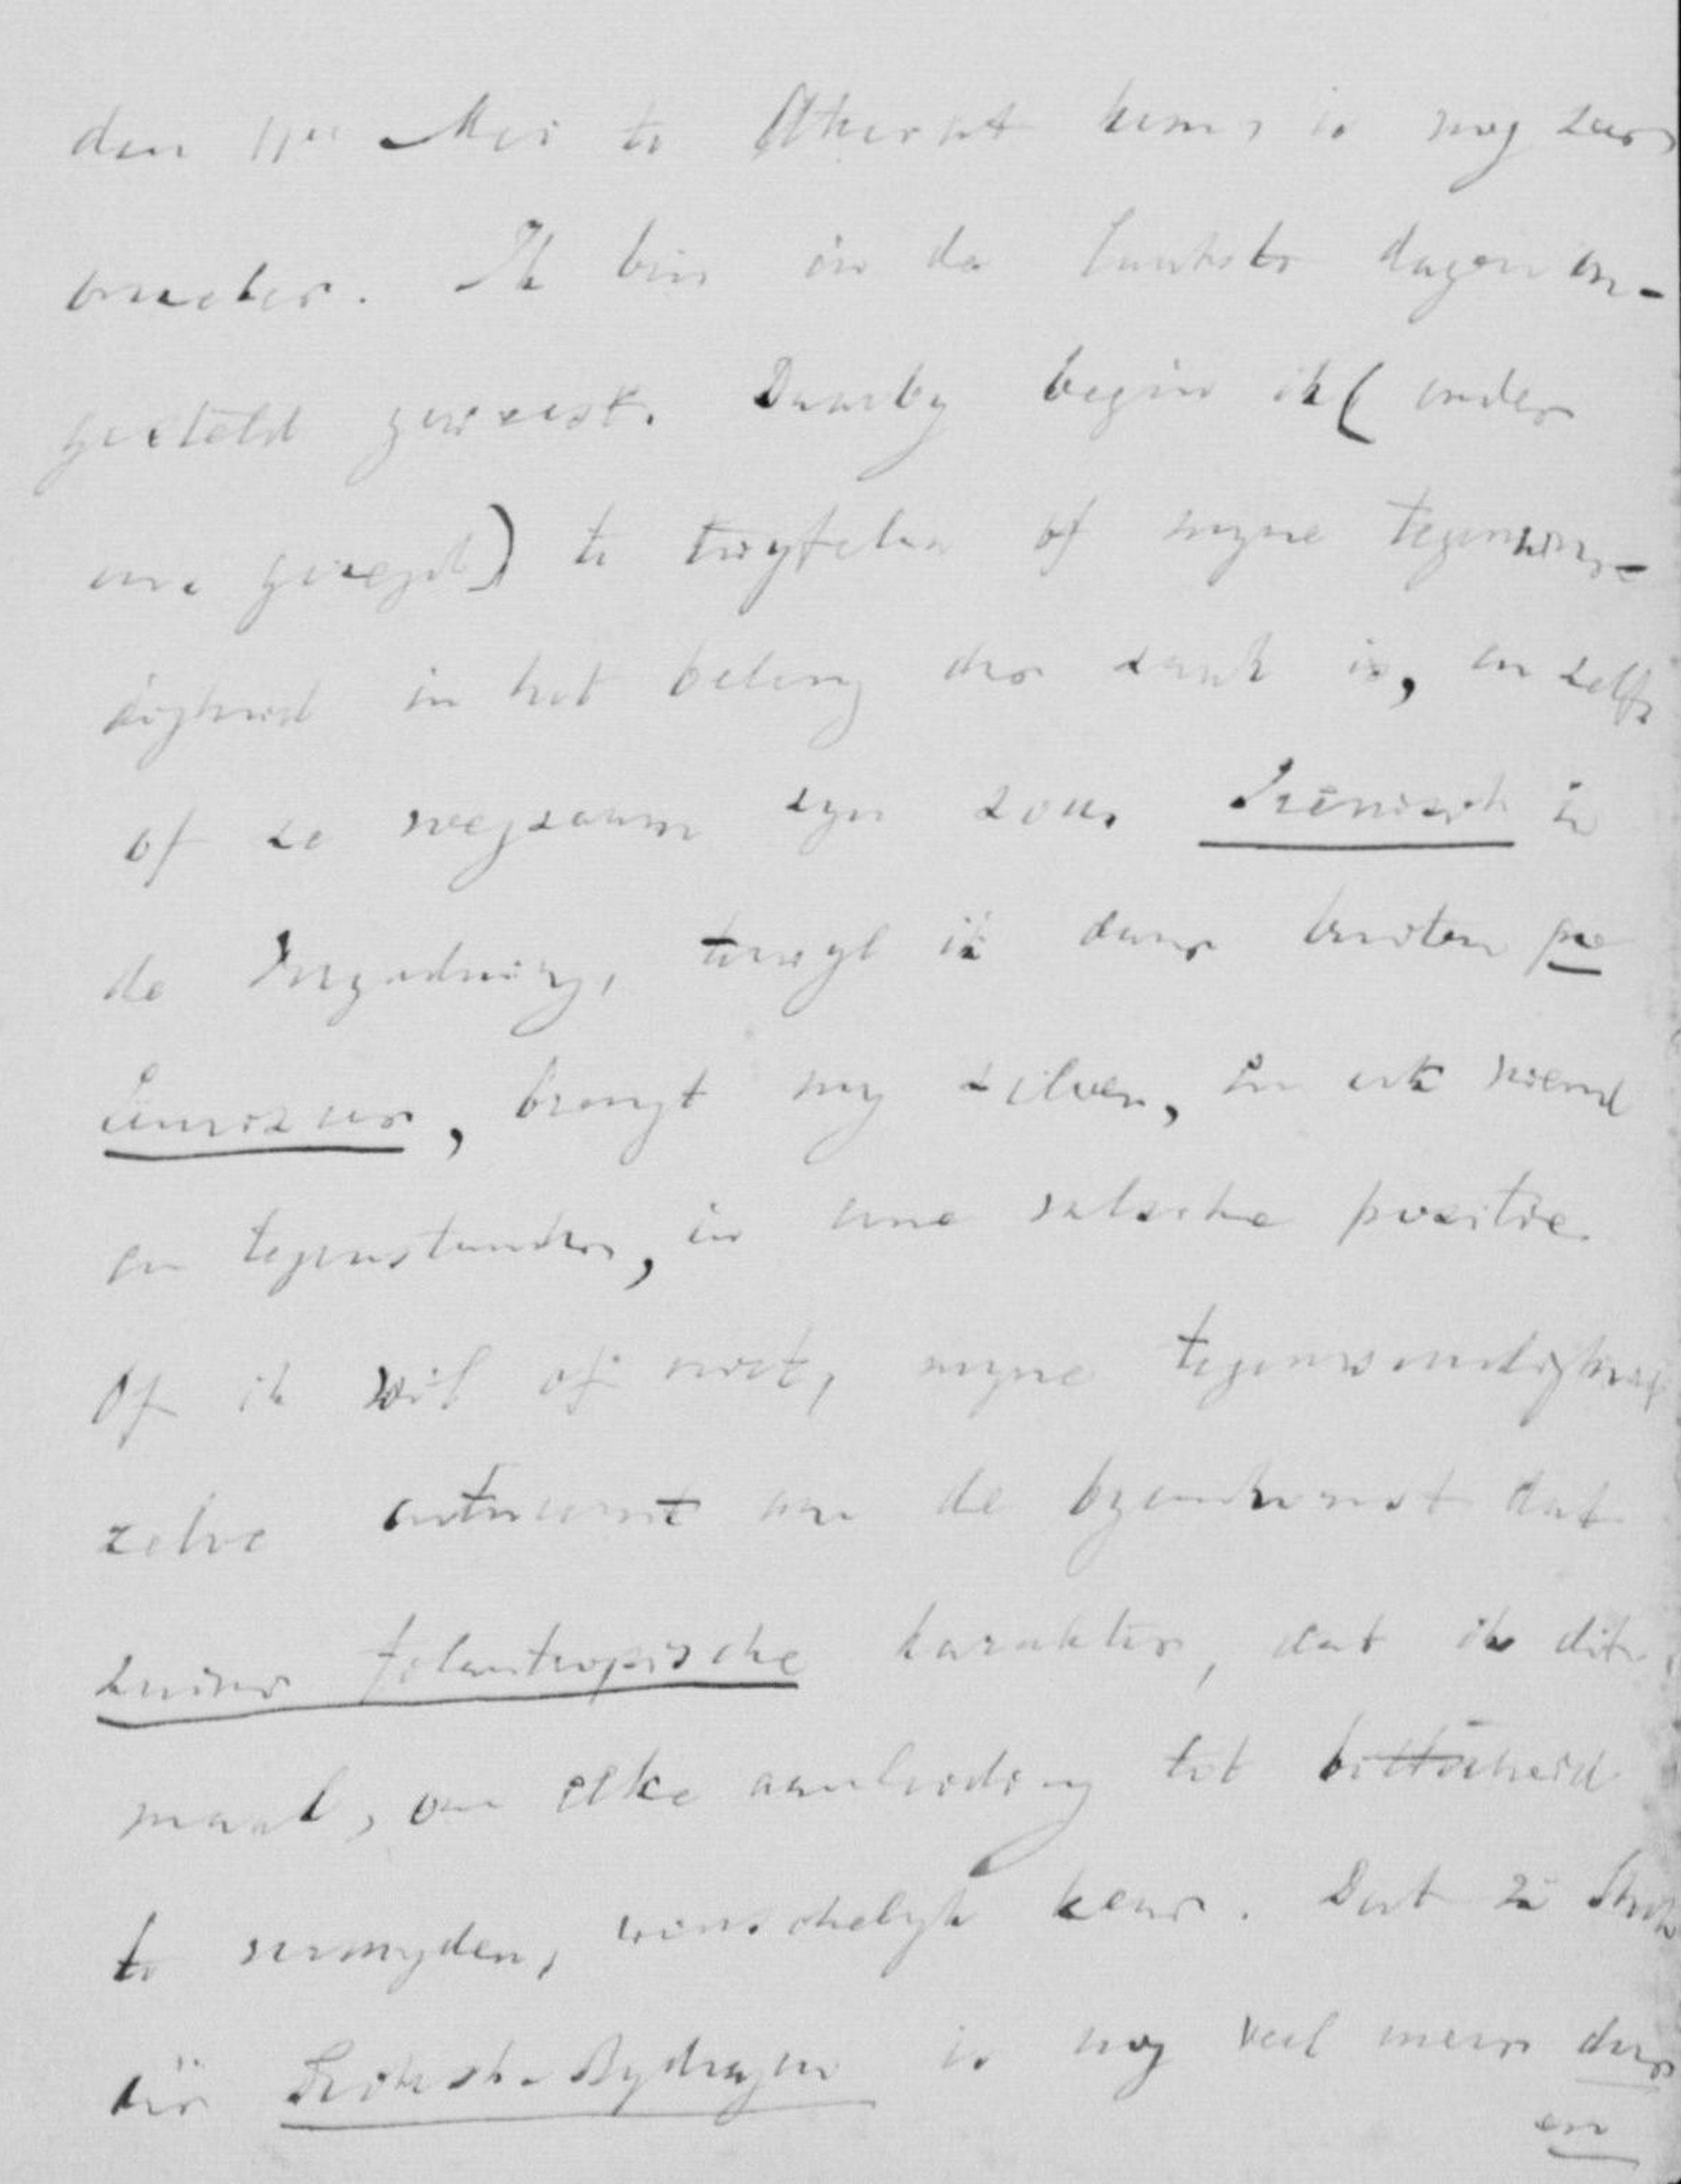 den 11en Mei te Utrecht kom, is nog zeer
onzeker. Ik ben in de laatste dagen on-
gesteld geweest. Daarby begin ik (onder
ons gezegd) te twyfelen of myne tegenwoor-
digheid in het belang der zaak is, en zelfs
of ze wegzaam zyn zou. Irenisch in
de Vergadering, terwyl ik daar buiten po
lemizeer, brengt my zelven, en elk vriend
en tegenstander, in eene valsche positie.
Of ik wil of niet, myne tegenwoordigheid
zelve ontneemt aan de byeenkomst dat
zuiver filantropische karakter, dat ik dit-
maal, om elke aanleiding tot bitterheid
te vermyden, wenschelyk keur. Dat zie
der Kritisch-Bydragen is nog veel meer dan
en